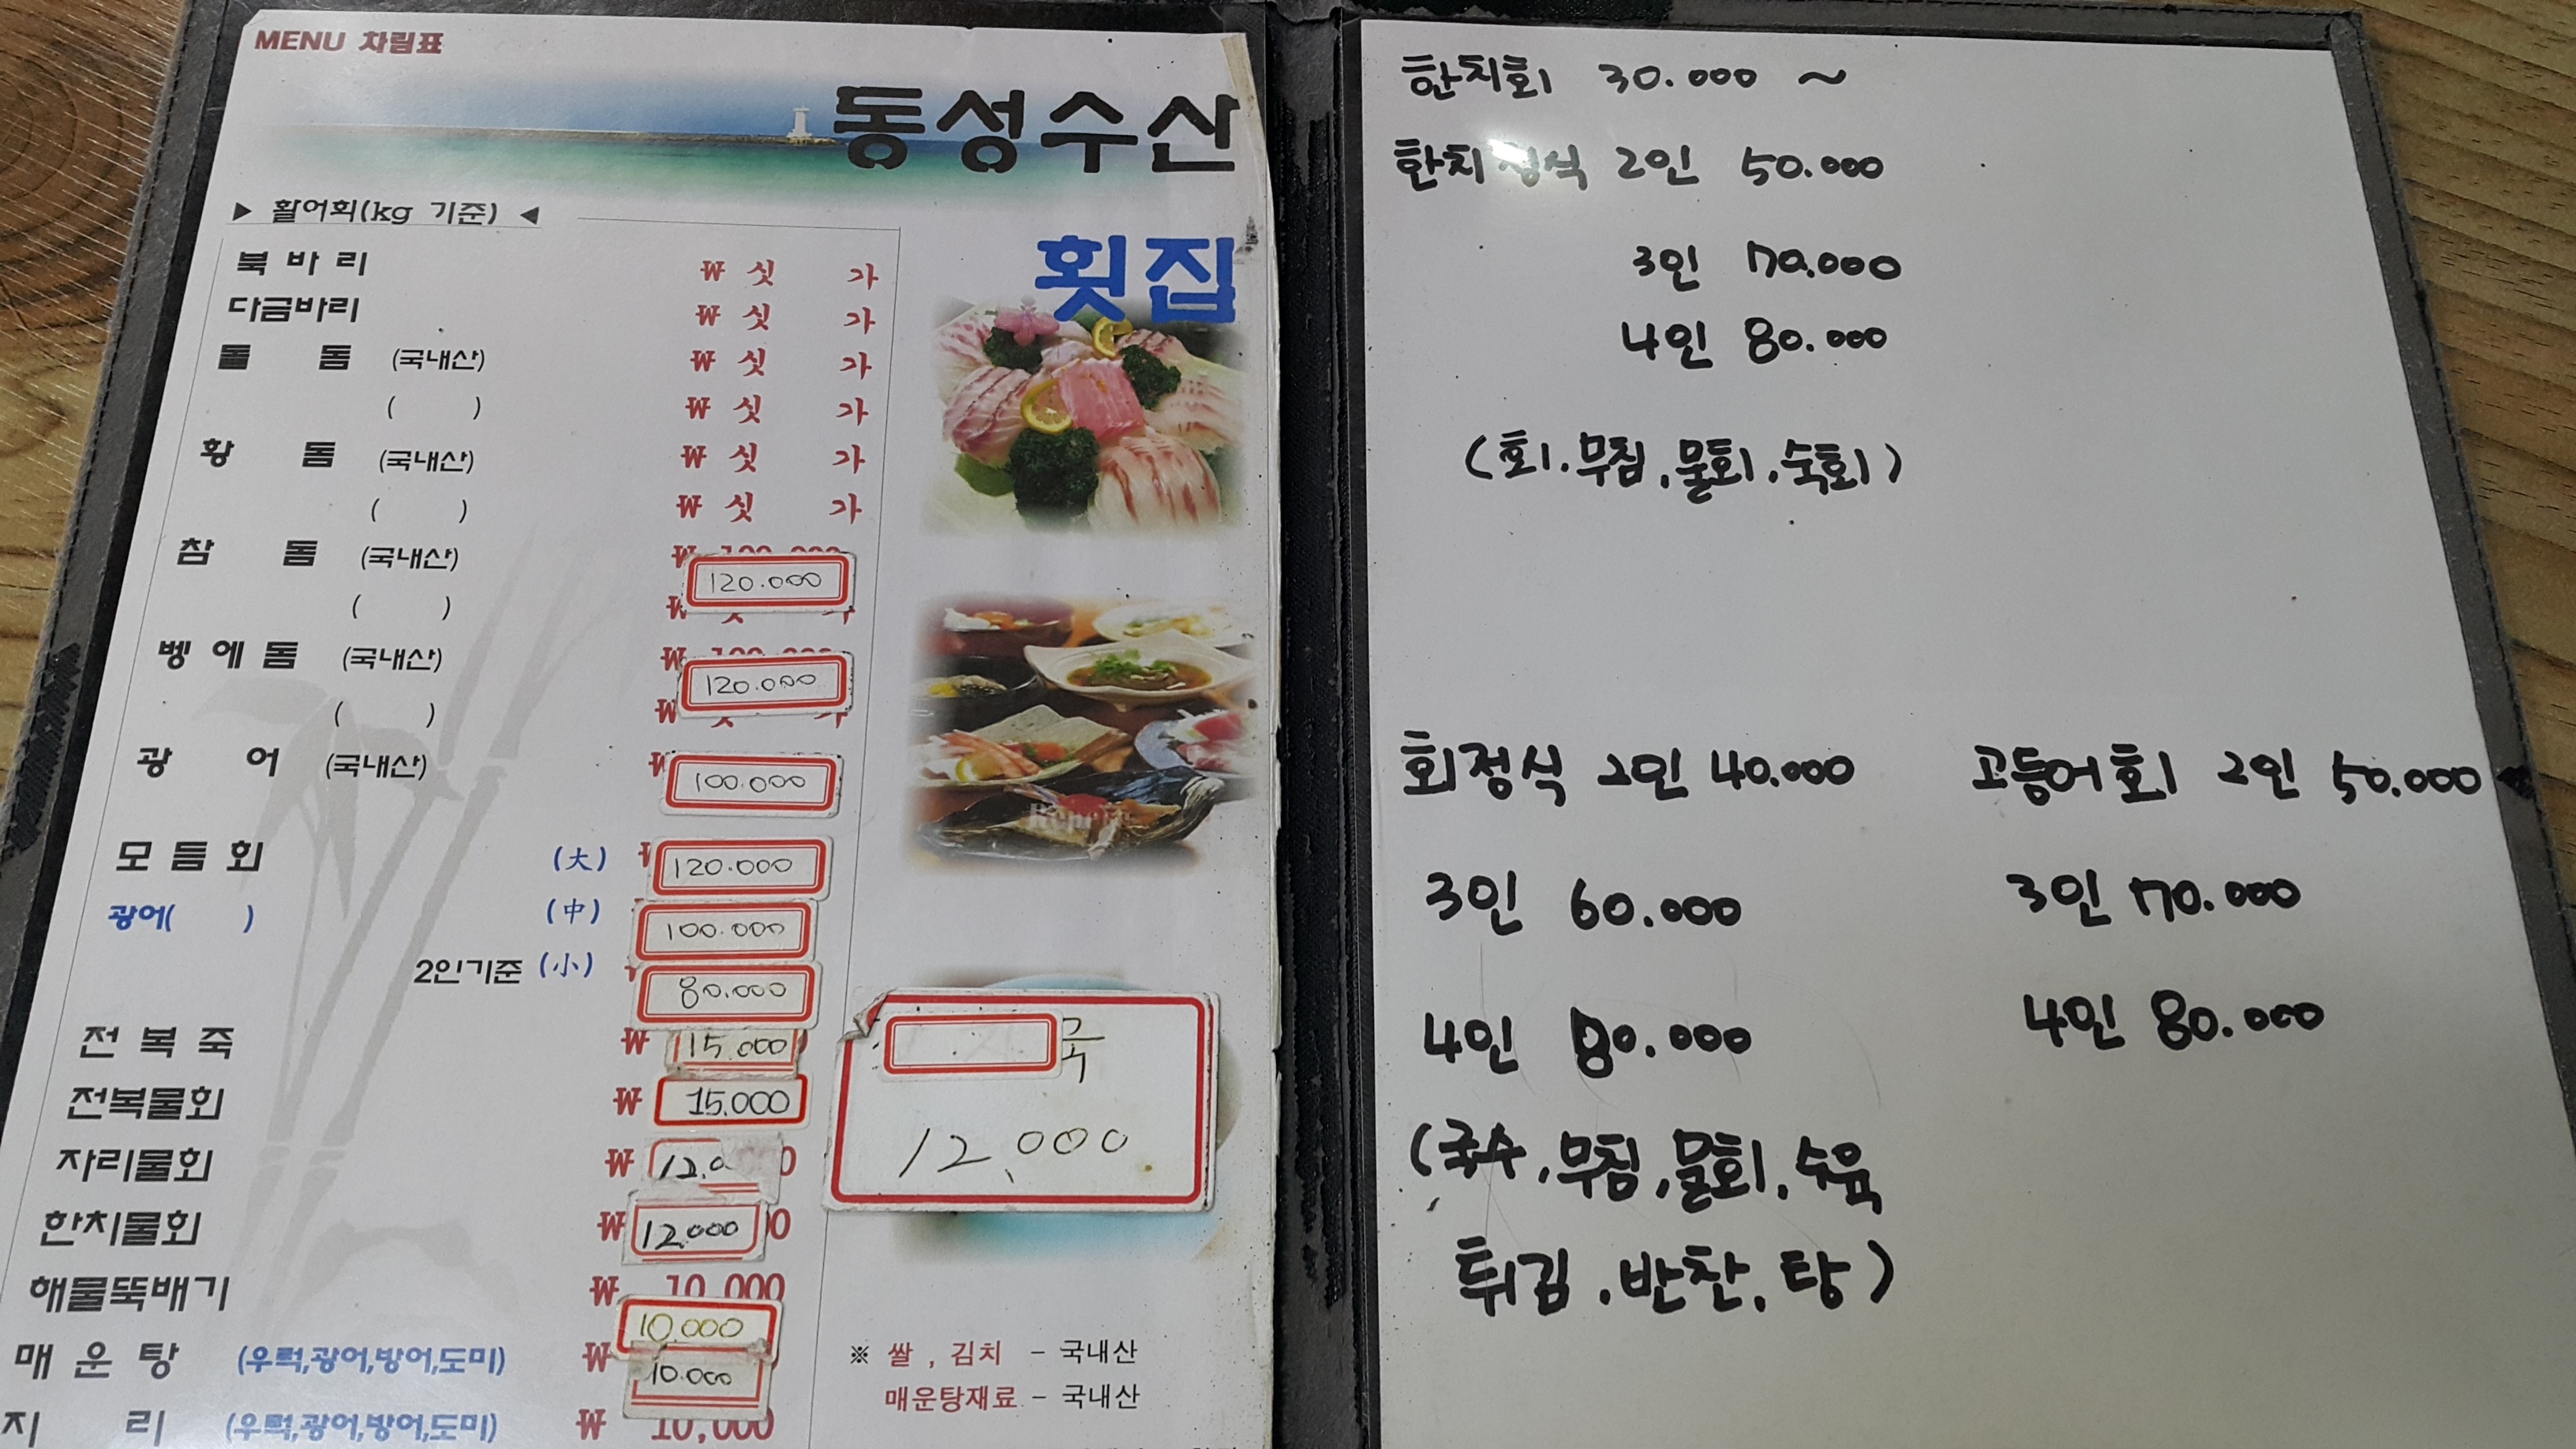 MENU 차림표
동성수산
횟집
▶ 활어회(kg 기준) ◀
북바리 ₩ 싯 가
다금바리 ₩ 싯 가
돌 돔 (국내산) ₩ 싯 가
( ) ₩ 싯 가
황 돔 (국내산) ₩ 싯 가
( ) ₩ 싯 가
참 돔 (국내산) ₩ 120.000
( ) ₩
벵에돔 (국내산) ₩ 120.000
( ) ₩
광 어 (국내산) 100.000
모듬회 (大) 120.000
광어( ) (中) 100.000
2인기준 (小) 80.000
전복죽 ₩ 15.000
전복물회 ₩ 15.000
자리물회 ₩ 12.0
한치물회 ₩ 12.000
해물뚝배기 ₩ 10,000
10.000
매운탕 (우럭,광어,방어,도미) ₩ 10.000
지 리 (우럭,광어,방어,도미) ₩ 10,000
국
12,000
※ 쌀 , 김치 - 국내산
매운탕재료 - 국내산
한치회 30.000 ~
한치정식 2인 50.000
3인 70.000
4인 80.000
(회.무침.물회.숙회)
회정식 2인 40.000
3인 60.000
4인 80.000
(국수.무침,물회.수육
튀김.반찬.탕)
고등어회 2인 50.000
3인 70.000
4인 80.000